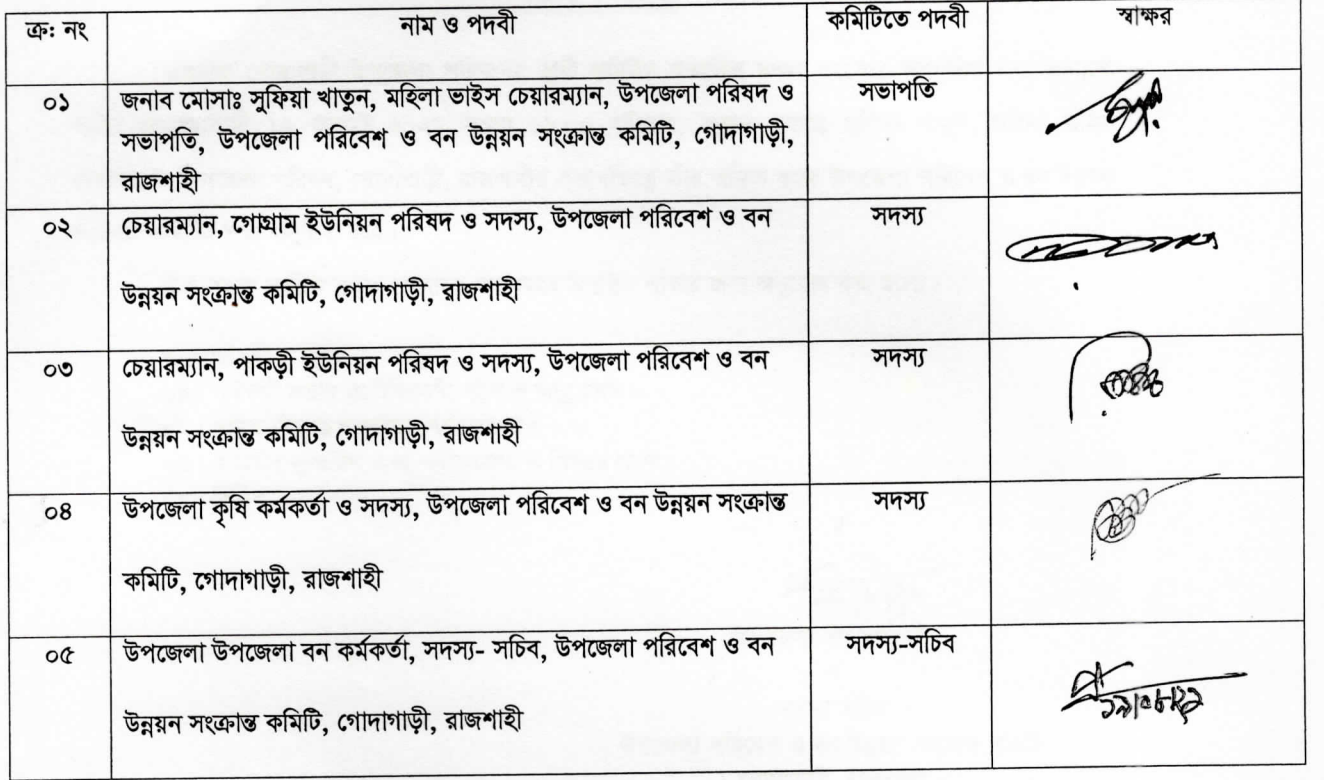 ক্র: নং নাম ও পদবী কমিটিতে পদবী স্বাক্ষর
০১ জনাব মোসাঃ সুফিয়া খাতুন, মহিলা ভাইস চেয়ারম্যান, উপজেলা পরিষদ ও সভাপতি
সভাপতি, উপজেলা পরিবেশ ও বন উন্নয়ন সংক্রান্ত কমিটি, গোদাগাড়ী,
রাজশাহী
০২ চেয়ারম্যান, গোগ্রাম ইউনিয়ন পরিষদ ও সদস্য, উপজেলা পরিবেশ ও বন সদস্য
উন্নয়ন সংক্রান্ত কমিটি, গোদাগাড়ী, রাজশাহী
০৩ চেয়ারম্যান, পাকড়ী ইউনিয়ন পরিষদ ও সদস্য, উপজেলা পরিবেশ ও বন সদস্য
উন্নয়ন সংক্রান্ত কমিটি, গোদাগাড়ী, রাজশাহী
০৪ উপজেলা কৃষি কর্মকর্তা ও সদস্য, উপজেলা পরিবেশ ও বন উন্নয়ন সংক্রান্ত সদস্য
কমিটি, গোদাগাড়ী, রাজশাহী
০৫ উপজেলা উপজেলা বন কর্মকর্তা, সদস্য- সচিব, উপজেলা পরিবেশ ও বন সদস্য-সচিব
উন্নয়ন সংক্রান্ত কমিটি, গোদাগাড়ী, রাজশাহী